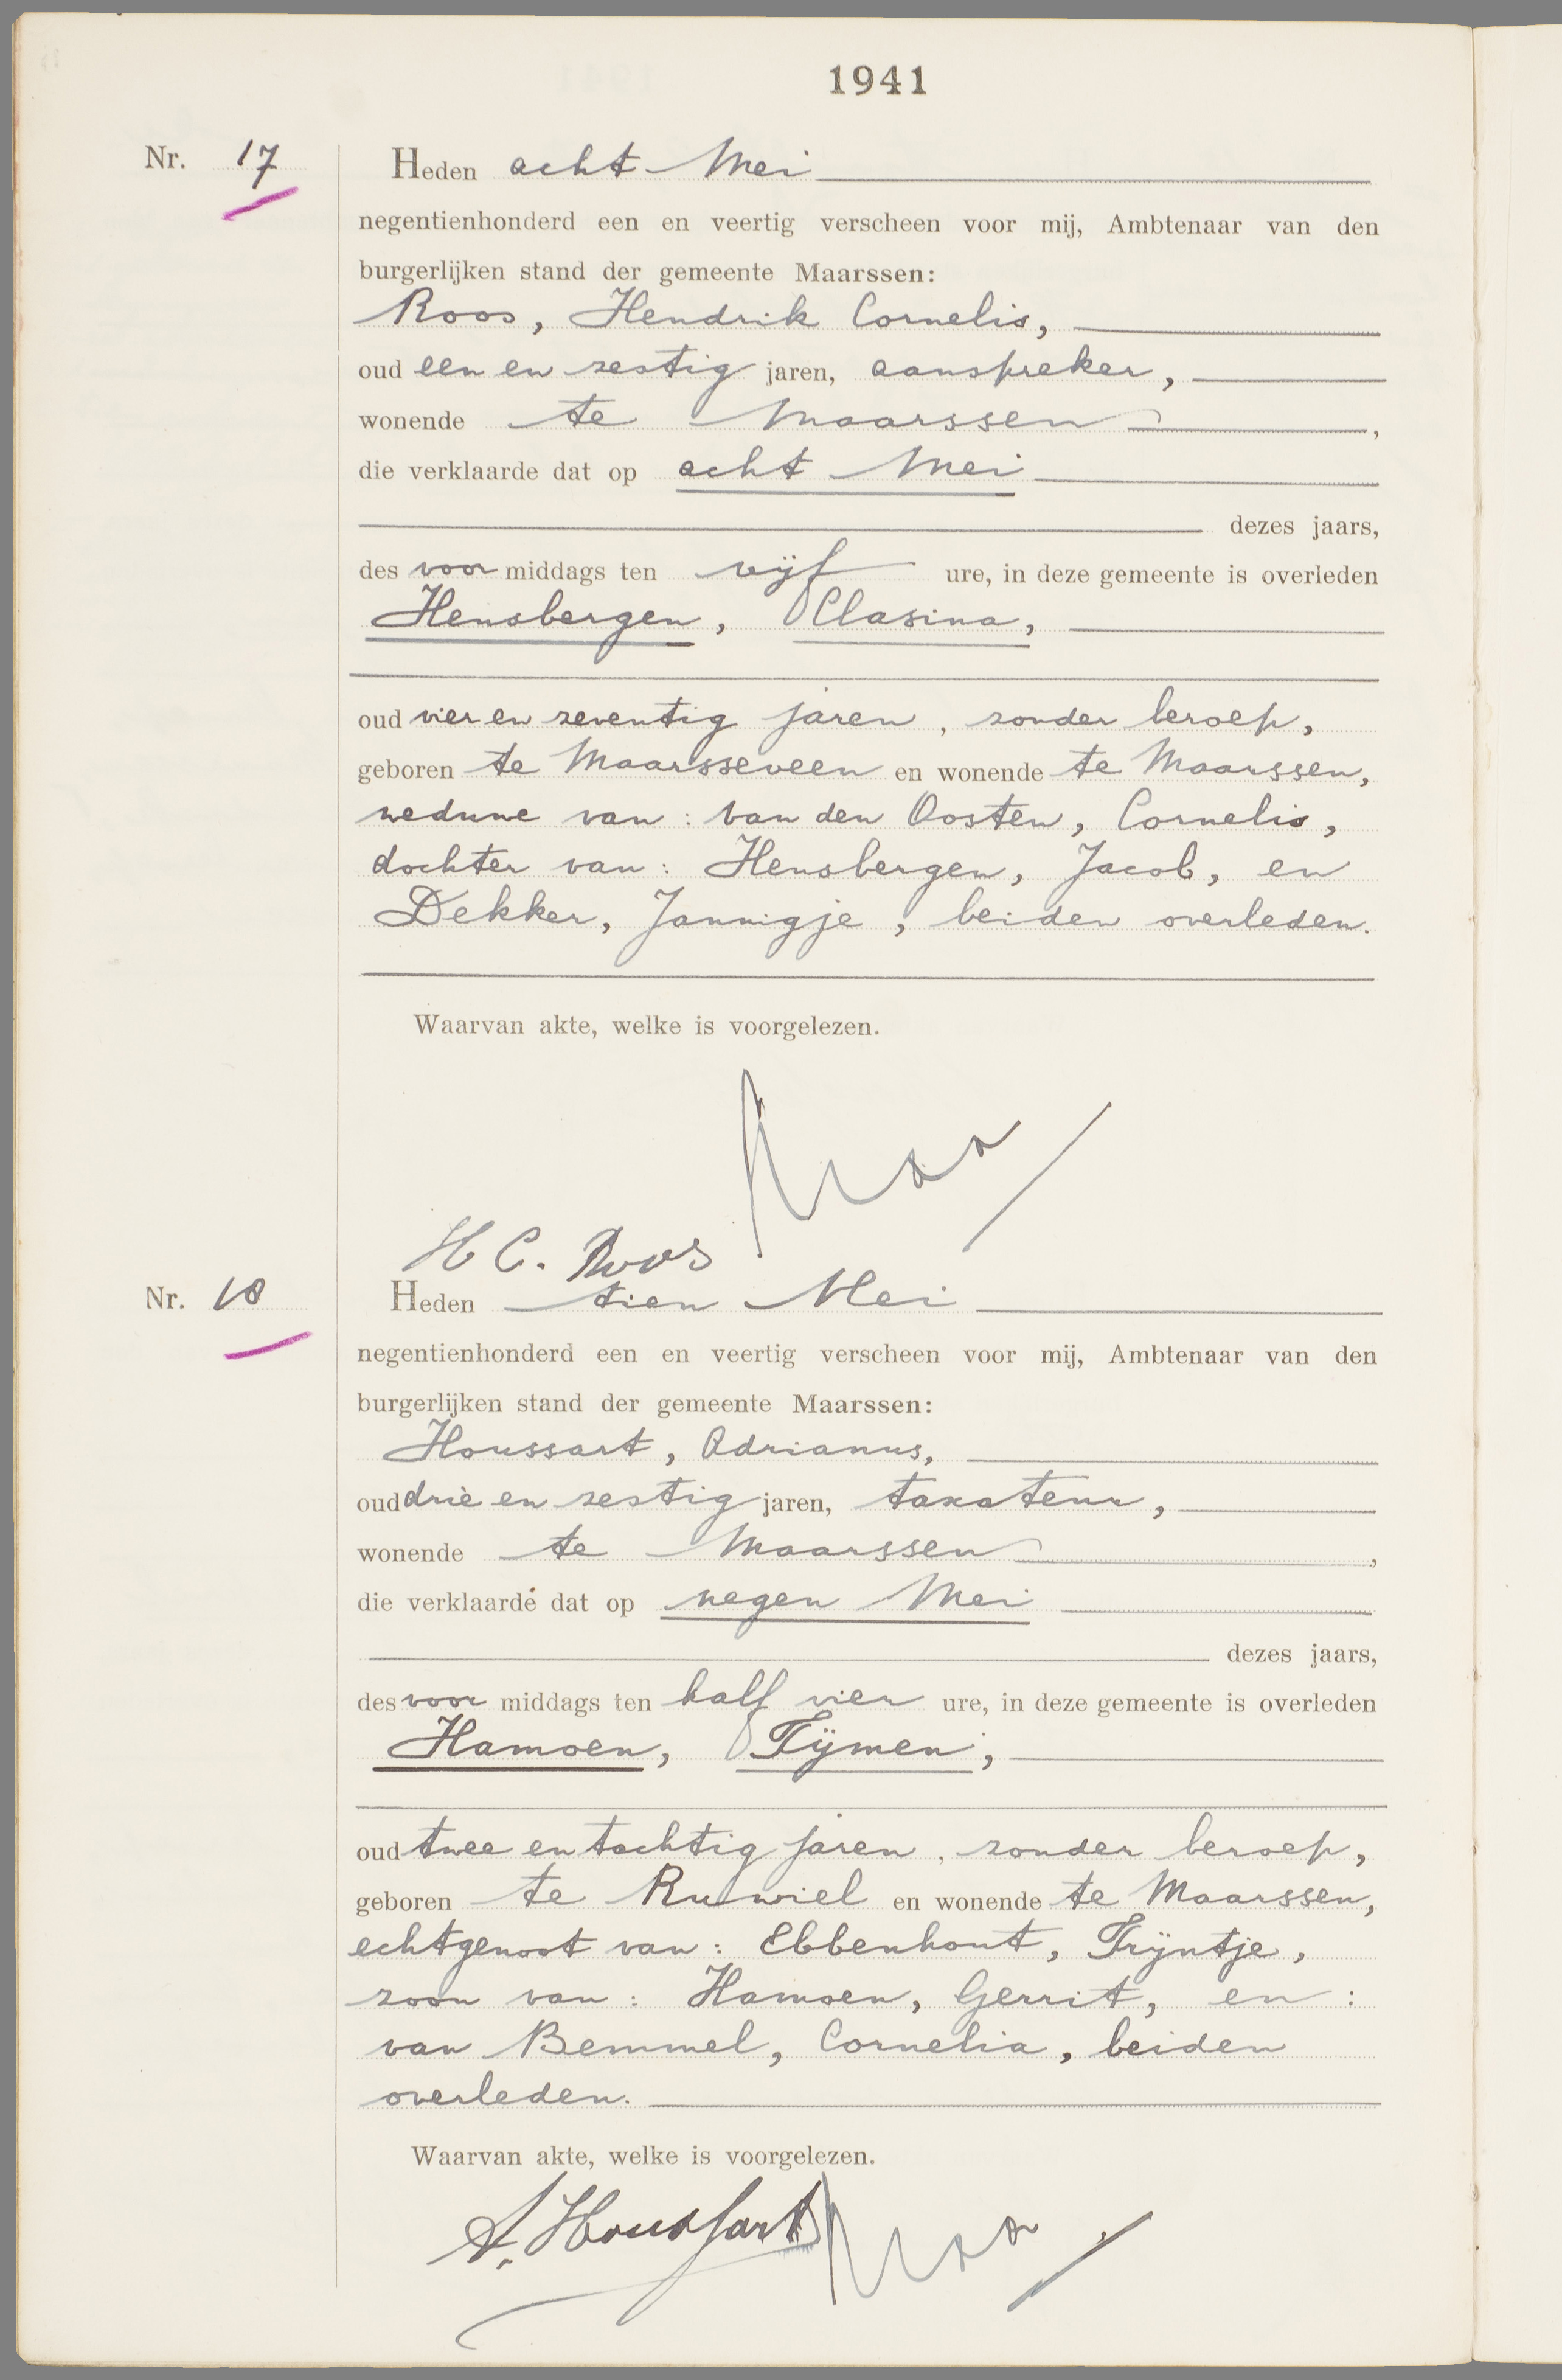 1941
Nr. 17
Heden acht Mei
negentienhonderd een en veertig verscheen voor mij, Ambtenaar van den
burgerlijken stand der gemeente Maarssen:
Roos, Hendrik Cornelis,
oud een en zestig jaren, aanspreker,
wonende te Maarssen,
die verklaarde dat op acht Mei
dezes jaars,
des voor middags ten vijf ure, in deze gemeente is overleden
Hensbergen, Clasina,
oud vier en zeventig jaren, zonder beroep,
geboren te Maarsseveen en wonende te Maarssen,
weduwe van: van den Oosten, Cornelis,
dochter van: Hensbergen, Jacob, en
Dekker, Jannigje, beiden overleden.
Waarvan akte, welke is voorgelezen.
H C. Roos
Nr. 18
Heden tien Mei
negentienhonderd een en veertig verscheen voor mij, Ambtenaar van den
burgerlijken stand der gemeente Maarssen:
Houssart, Adrianus,
oud drie en zestig jaren, taxateur,
wonende te Maarssen,
die verklaarde dat op negen Mei
dezes jaars,
des voor middags ten half vier ure, in deze gemeente is overleden
Hamoen, Tijmen,
oud twee en tachtig jaren, zonder beroep,
geboren te Ruwiel en wonende te Maarssen,
echtgenoot van: Ebbenhout, Trijntje,
zoon van: Hamoen, Gerrit, en:
van Bemmel, Cornelia, beiden
overleden.
Waarvan akte, welke is voorgelezen.
A. Houssart